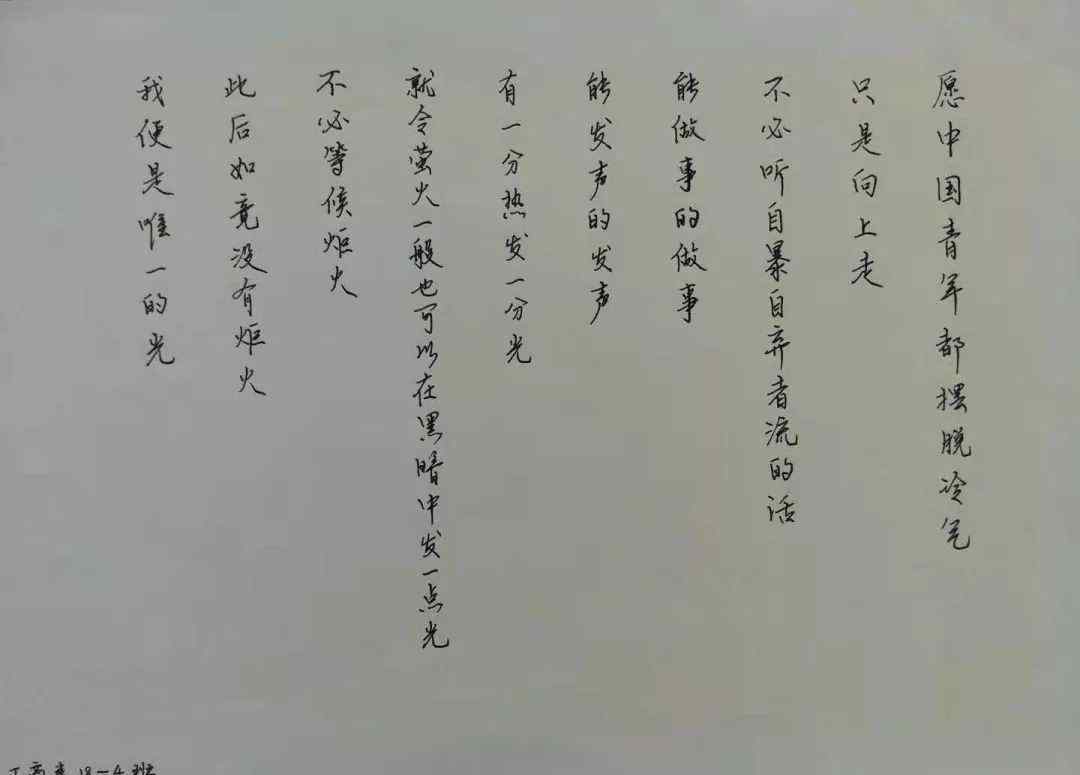 愿中国青年都摆脱冷气
只是向上走
不必听自暴自弃者流的话
能做事的做事
能发声的发声
有一分热发一分光
就令萤火一般也可以在黑暗中发一点光
不必等候炬火
此后如竟没有炬火
我便是唯一的光
工商类18-4班